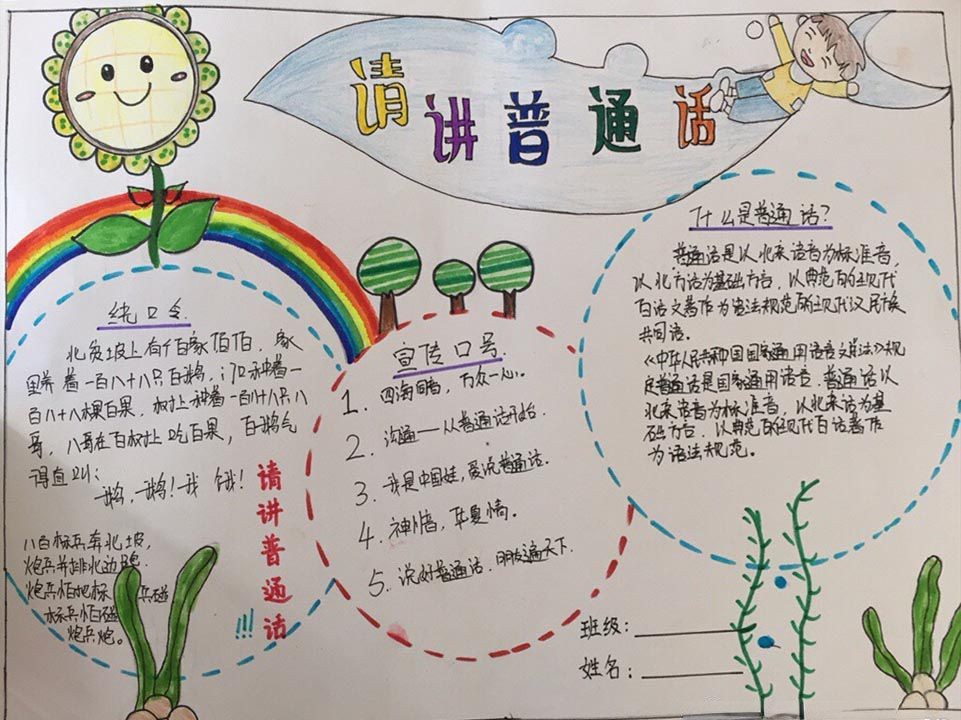 请讲普通话
绕口令
北负坡上有个百家伯伯,家
里养着一百八十八只白鹅,门口种着一
百八十八棵百果,树上种着一百八十只八
哥,八哥在百树上吃百果,百鹅气
得直叫:
鹅,鹅!我 饿!
八百标兵奔北坡,
炮兵并排北边跑,
炮兵怕把标兵碰
标兵怕碰
炮兵炮。
请讲普通话
!!!
宣传口号
1. 四海同音,万众一心。
2. 沟通——从普通话开始
3. 我是中国娃,爱说普通话。
4. 神州音,华夏情。
5. 说好普通话,朋友遍天下.
什么是普通话?
普通话是以北京语音为标准音,
以北方话为基础方言,以典范的现代
白话文著作为语法规范的现代汉民族
共同语。
《中华人民共和国国家通用语言文字法》规
定普通话是国家通用语言.普通话以
北京语音为标准音,以北京话为基
础方言,以典范的现代白话著作
为语法规范。
班级:
姓名: